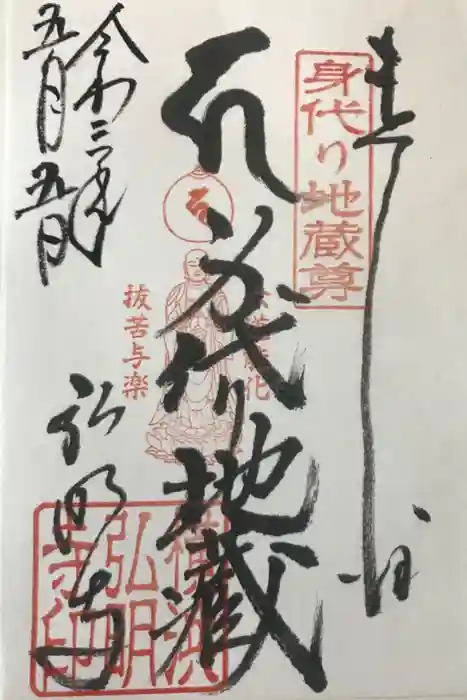 奉拝
身代り地蔵尊
身代り地蔵
抜苦与楽
弘明寺
横浜
弘明
寺印
令和三年
五月五日